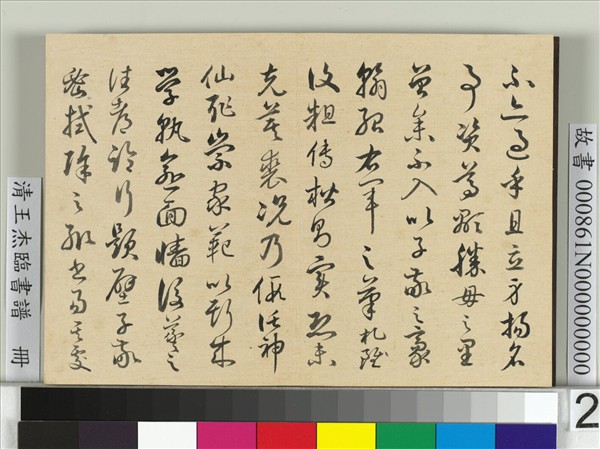 不亦過乎且立身揚名
事資尊顯勝母之里
曾參不入以子敬之豪
翰紹右軍之筆札雖
復粗傳楷則實恐未
克箕裘況乃假託神
仙恥崇家範以斯成
學孰愈面牆後羲之
往都臨行題壁子敬
密拭除之輒書易其處
故書 000861N000000000
清王杰臨書譜 冊
2